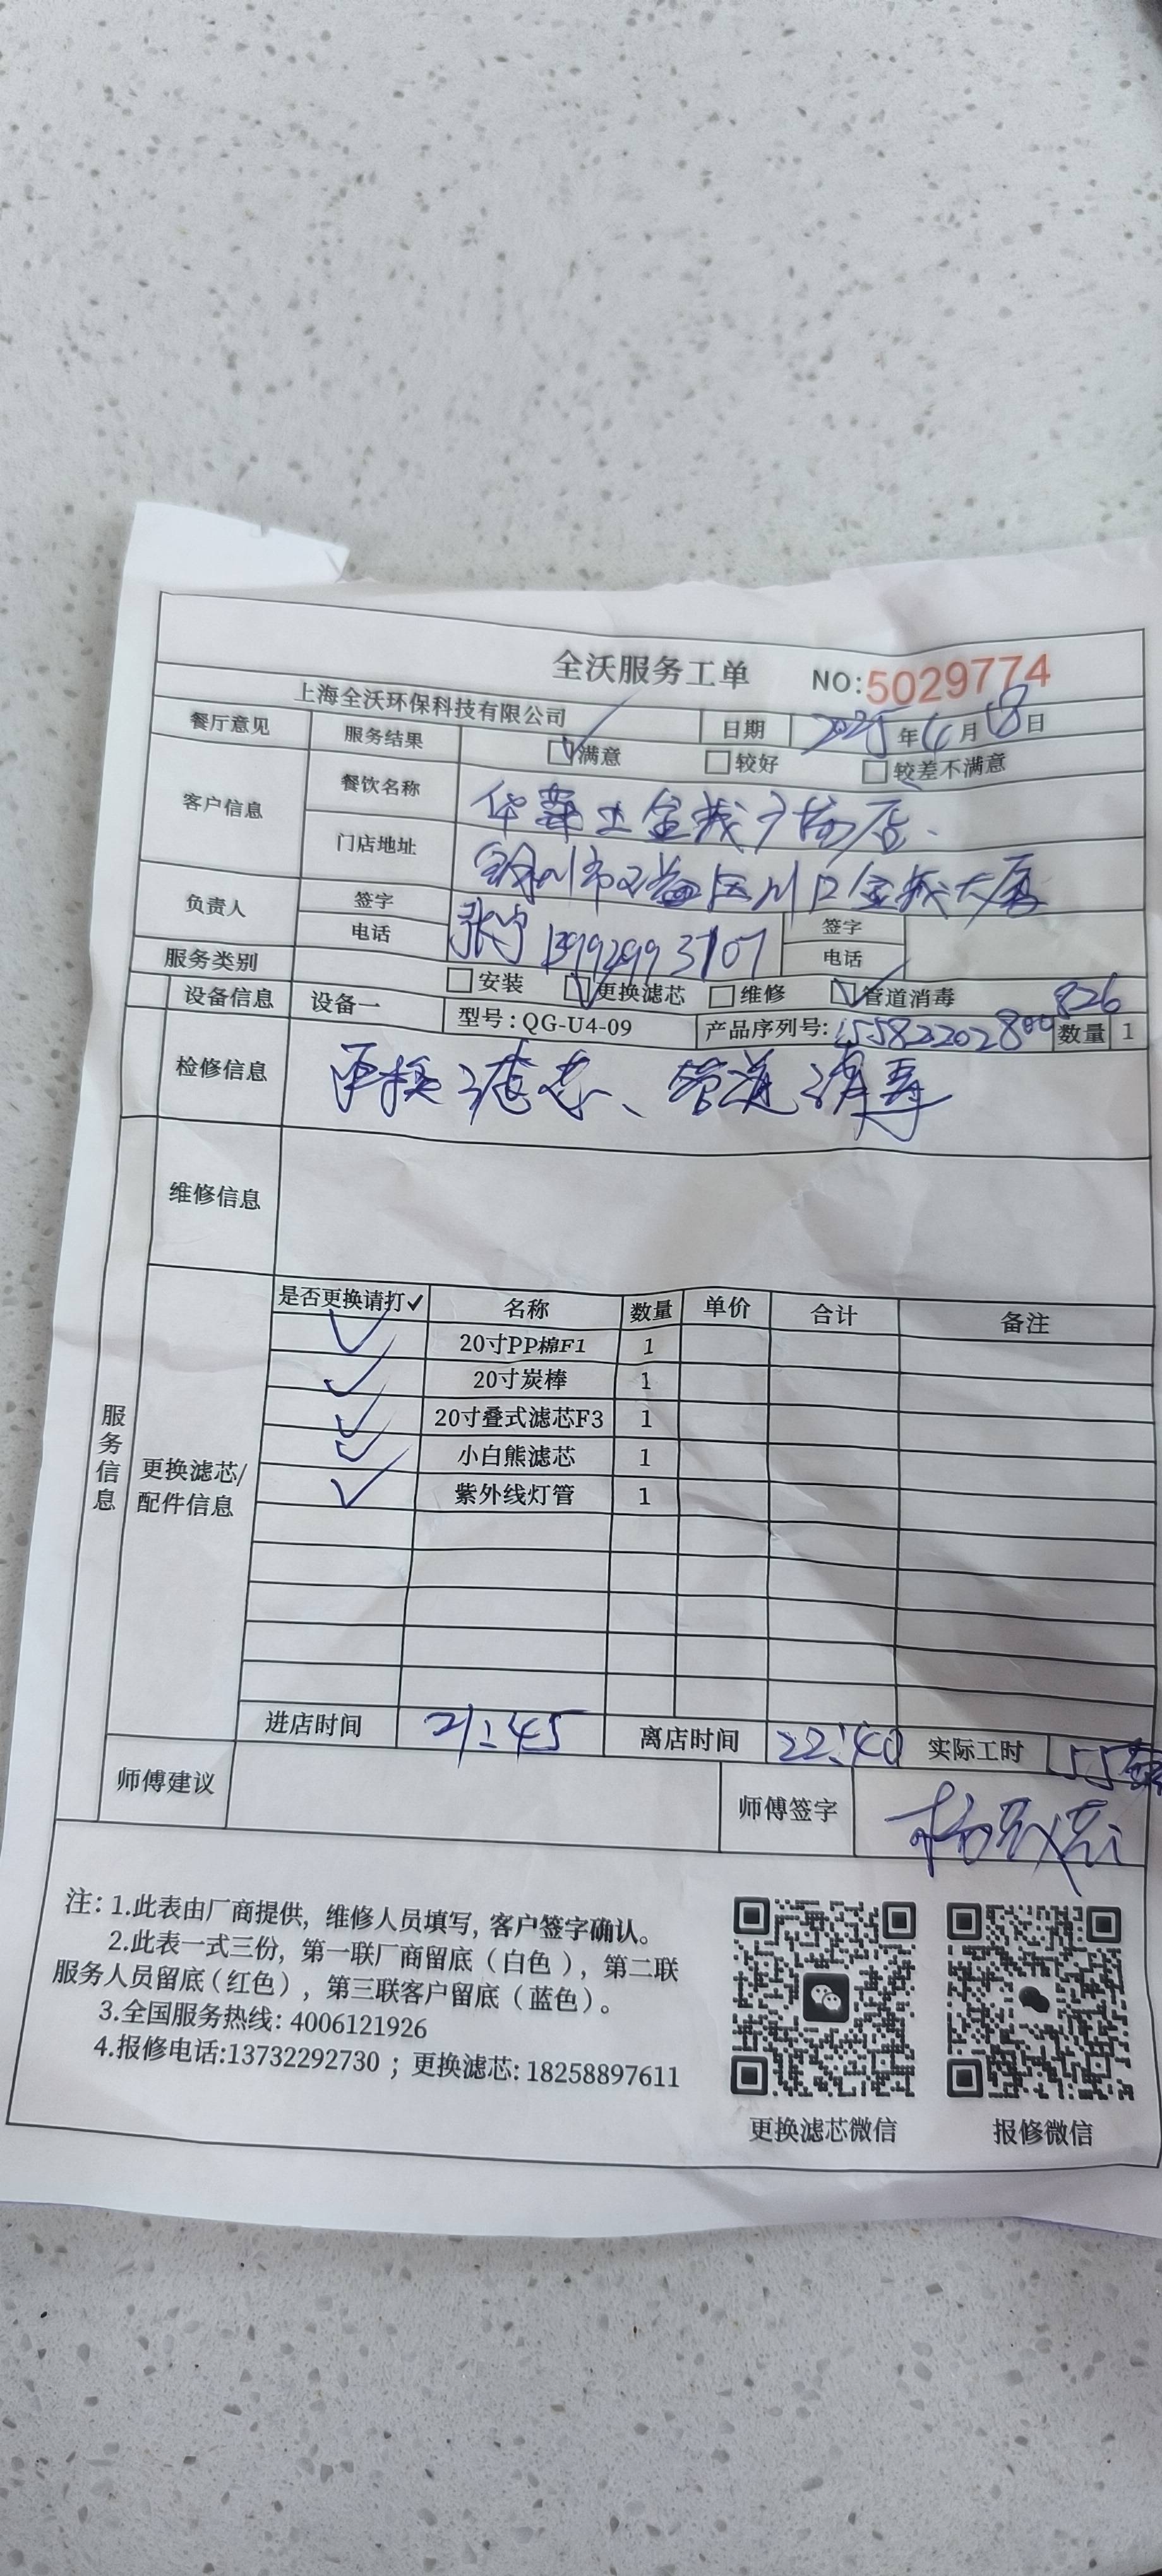 全沃服务工单 NO:5029774
上海全沃环保科技有限公司 日期 2025年6月18日
餐厅意见 服务结果 满意 较好 较差不满意
客户信息 餐饮名称 华莱士金城广场店
门店地址 川口金城大厦
负责人 签字 张 签字
电话 13992993707 电话
服务类别 安装 更换滤芯 维修 管道消毒
设备信息 设备一 型号:QG-U4-09 产品序列号:15582202800826 数量 1
检修信息 更换滤芯、管道消毒
维修信息
服务信息
更换滤芯/配件信息
是否更换请打✓ 名称 数量 单价 合计 备注
✓ 20寸PP棉F1 1
✓ 20寸炭棒 1
✓ 20寸叠式滤芯F3 1
✓ 小白熊滤芯 1
✓ 紫外线灯管 1
进店时间 21:45 离店时间 22:40 实际工时 55
师傅建议 师傅签字 杨
注: 1.此表由厂商提供, 维修人员填写, 客户签字确认。
2.此表一式三份, 第一联厂商留底(白色), 第二联
服务人员留底(红色), 第三联客户留底(蓝色)。
3.全国服务热线: 4006121926
4.报修电话:13732292730 ; 更换滤芯: 18258897611
更换滤芯微信 报修微信